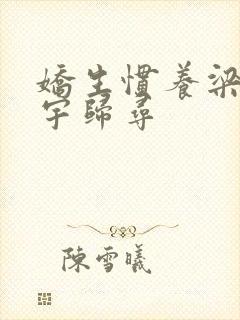 嬌生慣養梁
宇歸尋
陳雪曦